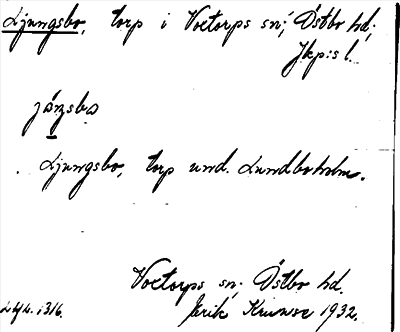 Ljungsbo, torp i Voxtorps sn; Östbo hd;
Jkp:s l.
jóŋsbo
Ljungsbo, torp und. Lundboholm.
Voxtorps sn; Östbo hd.
Jerik Krunse 1932.